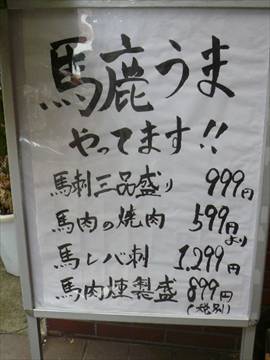 馬鹿うま
やってます!!
馬刺三品盛り 999円
馬肉の焼肉 599円より
馬レバ刺 1,299円
馬肉燻製盛 899円
(税別)